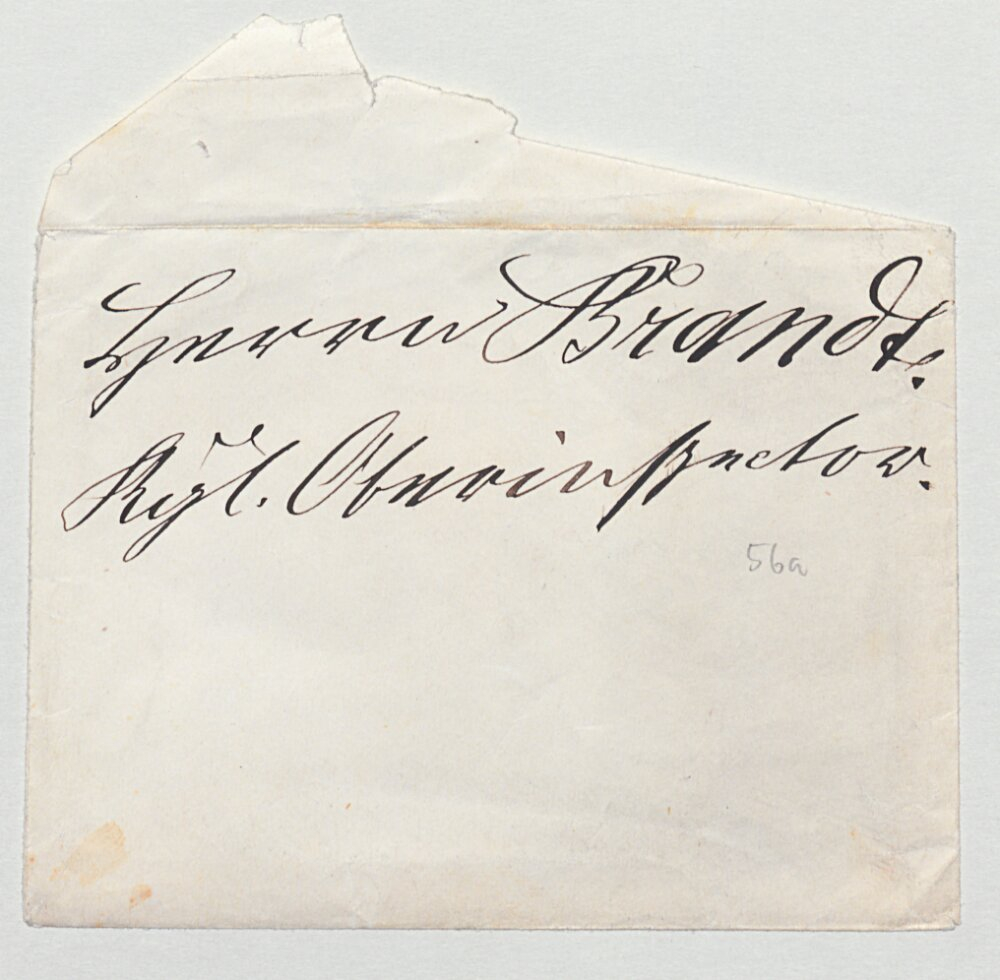 Herrn Brandt.
Kgl. Oberinspector.
56a